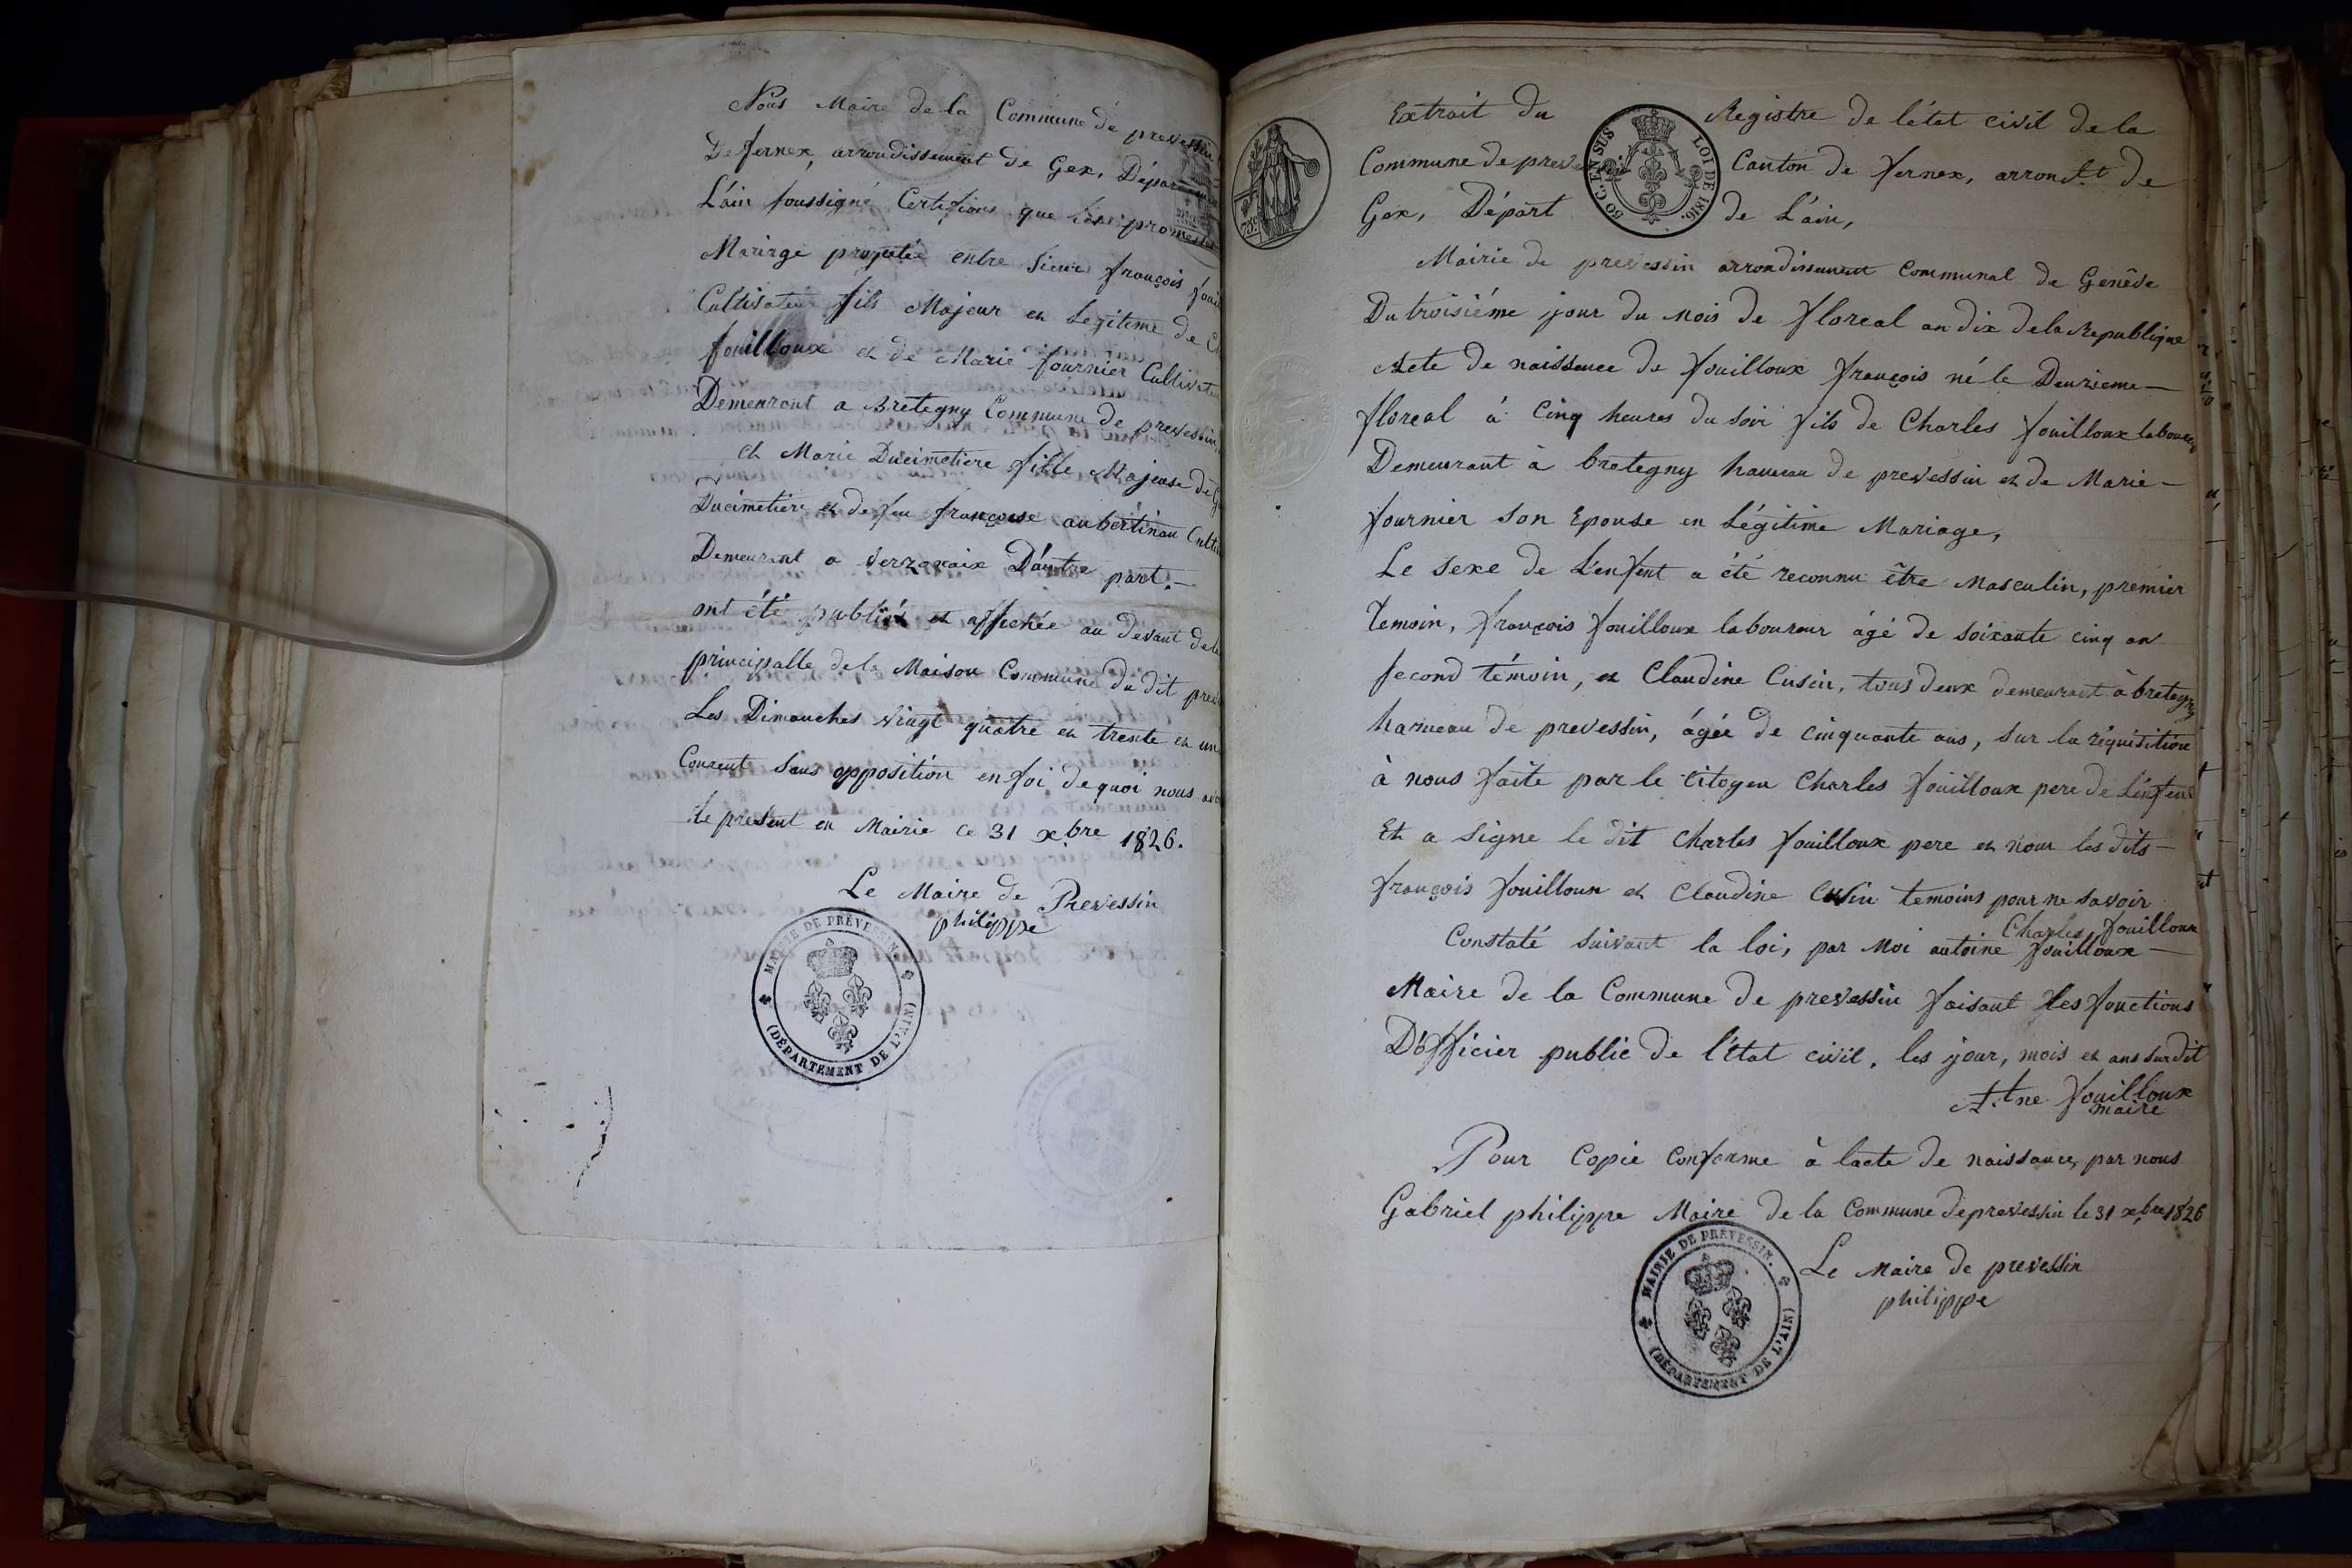 Nous Maire de la Commune de prevessin
De fernex, arrondissement de Gex, Départ
L'ain soussigné Certifions que les promesses
Mariage projetée entre Sieur françois foui
Cultivateur fils Majeur et Legitime de Ch
fouilloux et de Marie fournier Cultivat
Demeurant a Bretegny Commune de prevessin
et Marie Ducimetiere fille Majeure de
Ducimetiere et de feu françoise aubertinau Culti
Demeurant a Serzonaix D'autre part.-
ont été publiés et affichée au devant de la
principalle de la Maison Commune du dit prev
Les Dimanches vingt quatre et trente et un
Courent Sans opposition en foi de quoi nous avo
le present en Mairie ce 31 xbre 1826.
Le Maire de Prevessin
philippe
MAIRIE DE PRÉVESSIN.
(DÉPARTEMENT DE L'AIN)
Extrait du Registre de l'état civil de la
Commune de prevessin Canton de fernex, arrondt. de
Gex, Départ de L'ain,
50 C. EN SUS LOI DE 1816.
75c
Mairie de prevessin arrondissement Communal de Genêve
Du troisiéme jour du mois de floreal an dix de la Republique
Acte de naissance de fouilloux françois né le Deuxieme —
floreal à Cinq heures du soir fils de Charles fouilloux laboureur
Demeurant à bretegny hameau de prevessin et de Marie —
fournier Son Epouse en Légitime Mariage,
Le Sexe de L'enfent a été reconnu être Masculin, premier
Temoin, françois fouilloux laboureur âgé de soixante cinq an
second témoin, et Claudine Cusin, tous deux demeurant à bretegny
hameau de prevessin, ágée de cinquante ans, sur la réquisition
à nous faite par le Citoyen Charles fouilloux pere de L'enfend
Et a Signe le dit Charles fouilloux pere et nom les dits —
françois fouilloux et Claudine Cusin temoins pour ne savoir
Charles fouilloux
Constaté suivant la loi, par Moi antoine fouilloux —
Maire de la Commune de prevessin faisant les fonctions
D'officier public de l'état civil, les jour, mois et ans surdit
At.ne fouilloux
maire
Pour Copie Conforme à lacte de naissance, par nous
Gabriel philippe Maire de la Commune de prevessin le 31 xbre 1826
Le Maire de prevessin
philippe
MAIRIE DE PRÉVESSIN.
(DÉPARTEMENT DE L'AIN)